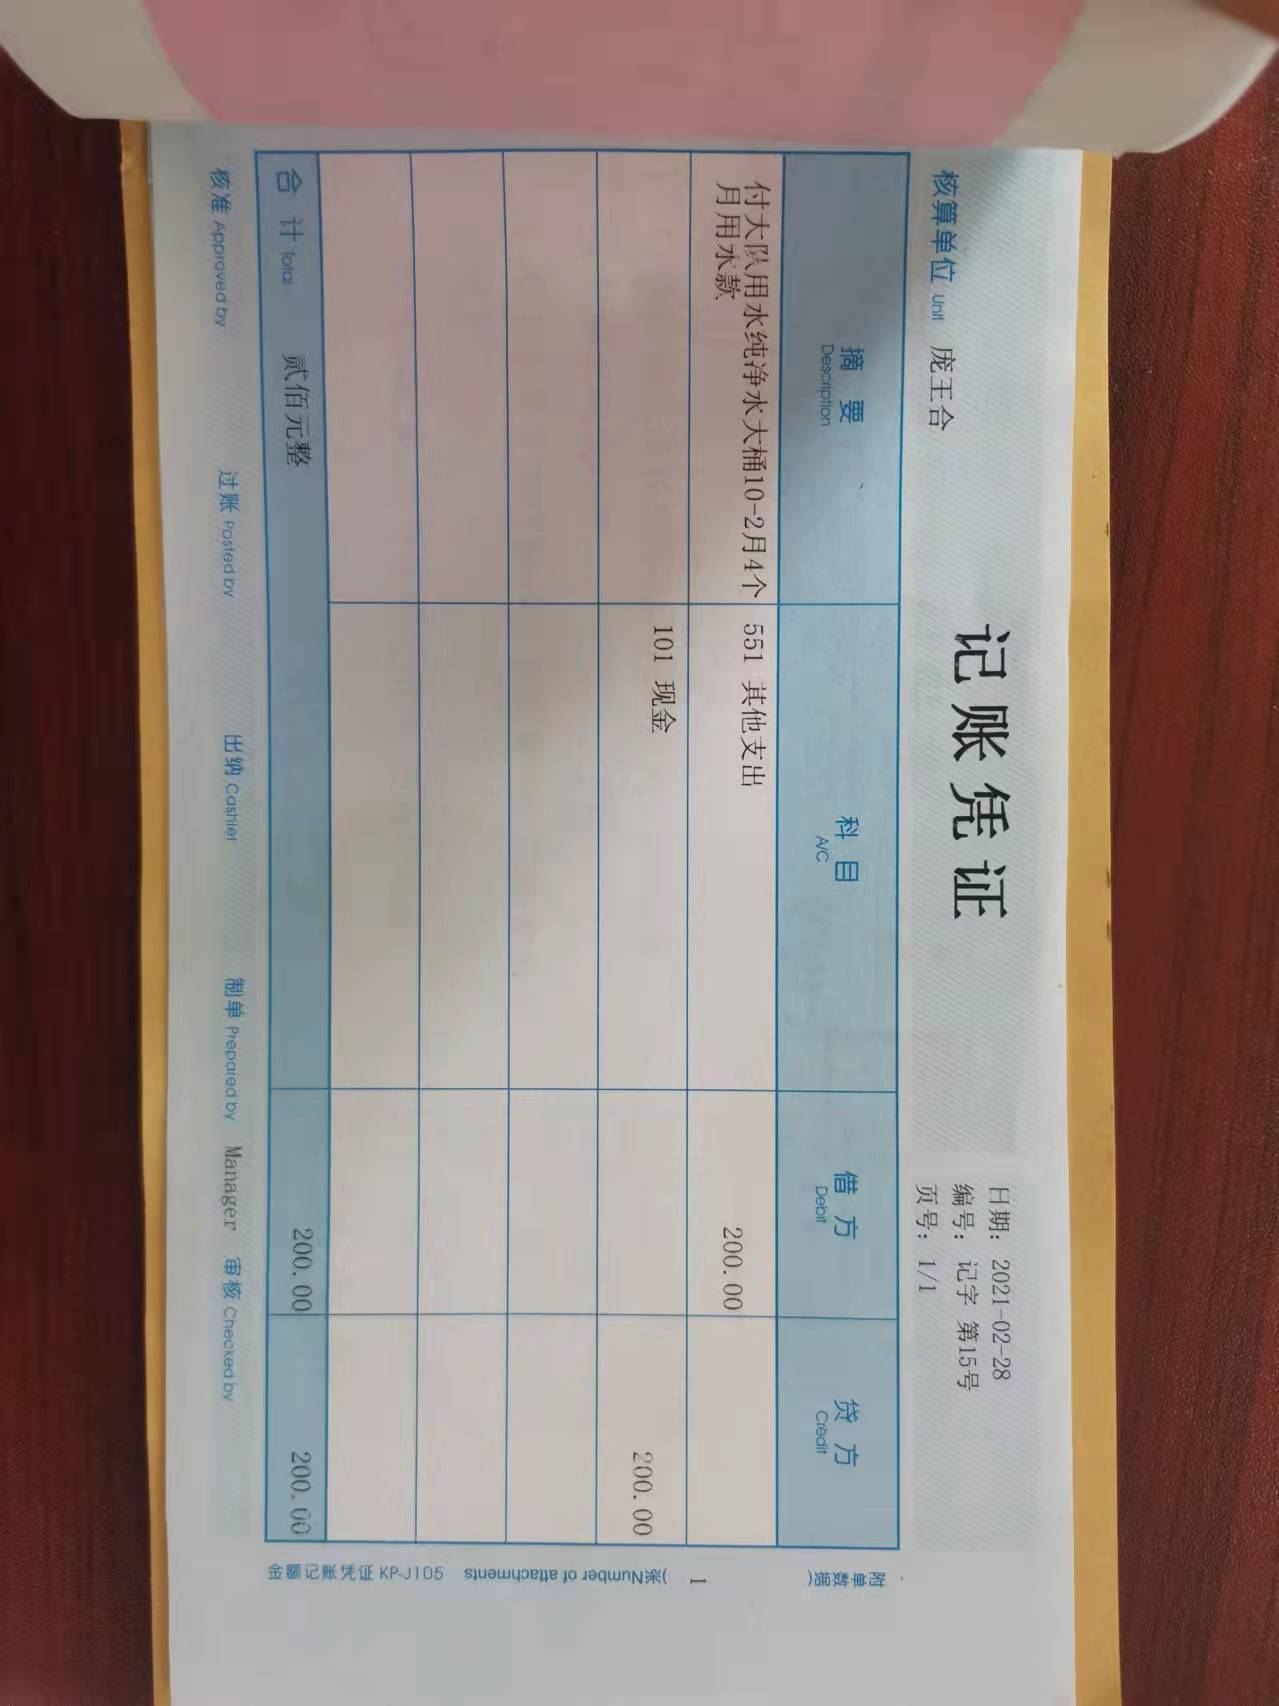 记账凭证
日期：2021-02-28
编号：记字 第15号
核算单位 Unit 庞王合
页号：1/1
摘要 Description 科目 A/C 借方 Debit 贷方 Credit
付大队用水纯净水大桶10-2月4个 551 其他支出 200.00
月用水款
101 现金 200.00
合计 Total 贰佰元整 200.00 200.00
核准 Approved by 过账 Posted by 出纳 Cashier 制单 Prepared by Manager 审核 Checked by
附单数据(
1
)张Number of attachments
金额记账凭证 KP-J105